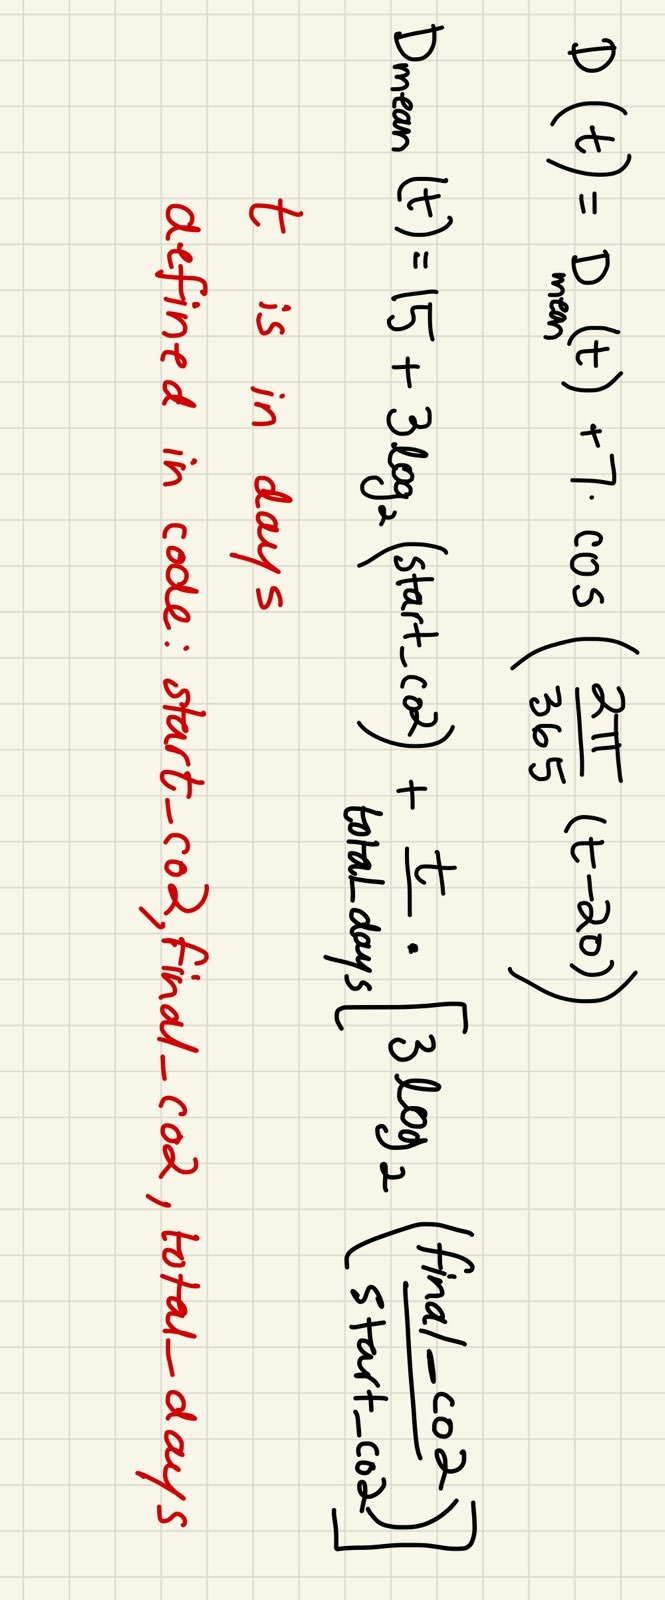 D(t) = D_mean(t) + 7 · cos(2π/365 (t-20))
D_mean(t) = 15 + 3 log_2(start_co2) + t/total_days · [3 log_2(final_co2/start_co2)]
t is in days
defined in code: start_co2, final_co2, total_days